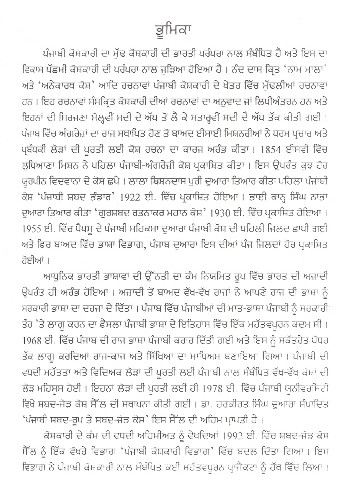 ਭੂਮਿਕਾ
ਪੰਜਾਬੀ ਕੋਸ਼ਕਾਰੀ ਦਾ ਮੁੱਢ ਕੋਸ਼ਕਾਰੀ ਦੀ ਭਾਰਤੀ ਪਰੰਪਰਾ ਨਾਲ ਸੰਬੰਧਿਤ ਹੈ ਅਤੇ ਇਸ ਦਾ
ਵਿਕਾਸ ਪੱਛਮੀ ਕੋਸ਼ਕਾਰੀ ਦੀ ਪਰੰਪਰਾ ਨਾਲ ਜੁੜਿਆ ਹੋਇਆ ਹੈ। ਨੰਦ ਦਾਸ ਕ੍ਰਿਤ 'ਨਾਮ ਮਾਲਾ'
ਅਤੇ 'ਅਨੇਕਾਰਥ ਕੋਸ਼' ਆਦਿ ਰਚਨਾਵਾਂ ਪੰਜਾਬੀ ਕੋਸ਼ਕਾਰੀ ਦੇ ਖੇਤਰ ਵਿੱਚ ਮੁੱਢਲੀਆਂ ਰਚਨਾਵਾਂ
ਹਨ। ਇਹ ਰਚਨਾਵਾਂ ਸੰਸਕ੍ਰਿਤ ਕੋਸ਼ਕਾਰੀ ਦੀਆਂ ਰਚਨਾਵਾਂ ਦਾ ਅਨੁਵਾਦ ਜਾਂ ਲਿਪੀਅੰਤਰਨ ਹਨ ਅਤੇ
ਇਹਨਾਂ ਦੀ ਸਿਰਜਣਾ ਸੋਲ੍ਹਵੀਂ ਸਦੀ ਦੇ ਅੱਧ ਤੋਂ ਲੈ ਕੇ ਸਤਾਰ੍ਹਵੀਂ ਸਦੀ ਦੇ ਅੱਧ ਤੱਕ ਕੀਤੀ ਗਈ।
ਪੰਜਾਬ ਵਿੱਚ ਅੰਗਰੇਜ਼ਾਂ ਦਾ ਰਾਜ ਸਥਾਪਿਤ ਹੋਣ ਤੋਂ ਬਾਅਦ ਈਸਾਈ ਮਿਸ਼ਨਰੀਆਂ ਨੇ ਧਰਮ ਪ੍ਰਚਾਰ ਅਤੇ
ਪ੍ਰਬੰਧਕੀ ਲੋੜਾਂ ਦੀ ਪੂਰਤੀ ਲਈ ਕੋਸ਼ ਰਚਨਾ ਦਾ ਕਾਰਜ ਅਰੰਭ ਕੀਤਾ। 1854 ਈਸਵੀ ਵਿੱਚ
ਲੁਧਿਆਣਾ ਮਿਸ਼ਨ ਨੇ ਪਹਿਲਾ ਪੰਜਾਬੀ-ਅੰਗਰੇਜ਼ੀ ਕੋਸ਼ ਪ੍ਰਕਾਸ਼ਿਤ ਕੀਤਾ। ਇਸ ਉਪਰੰਤ ਕੁਝ ਹੋਰ
ਯੂਰਪੀਨ ਵਿਦਵਾਨਾਂ ਦੇ ਕੋਸ਼ ਛਪੇ। ਲਾਲਾ ਬਿਸ਼ਨਦਾਸ ਪੁਰੀ ਦੁਆਰਾ ਤਿਆਰ ਕੀਤਾ ਪਹਿਲਾ ਪੰਜਾਬੀ
ਕੋਸ਼ 'ਪੰਜਾਬੀ ਸ਼ਬਦ ਭੰਡਾਰ' 1922 ਈ. ਵਿੱਚ ਪ੍ਰਕਾਸ਼ਿਤ ਹੋਇਆ। ਭਾਈ ਕਾਨ੍ਹ ਸਿੰਘ ਨਾਭਾ
ਦੁਆਰਾ ਤਿਆਰ ਕੀਤਾ 'ਗੁਰਸ਼ਬਦ ਰਤਨਾਕਰ ਮਹਾਨ ਕੋਸ਼' 1930 ਈ. ਵਿੱਚ ਪ੍ਰਕਾਸ਼ਿਤ ਹੋਇਆ।
1955 ਈ. ਵਿੱਚ ਪੈਪਸੂ ਦੇ ਪੰਜਾਬੀ ਮਹਿਕਮਾ ਦੁਆਰਾ ਪੰਜਾਬੀ ਕੋਸ਼ ਦੀ ਪਹਿਲੀ ਜਿਲਦ ਛਾਪੀ ਗਈ
ਅਤੇ ਫਿਰ ਬਾਅਦ ਵਿੱਚ ਭਾਸ਼ਾ ਵਿਭਾਗ, ਪੰਜਾਬ ਦੁਆਰਾ ਇਸ ਦੀਆਂ ਪੰਜ ਜਿਲਦਾਂ ਹੋਰ ਪ੍ਰਕਾਸ਼ਿਤ
ਹੋਈਆਂ।
ਆਧੁਨਿਕ ਭਾਰਤੀ ਭਾਸ਼ਾਵਾਂ ਦੀ ਉੱਨਤੀ ਦਾ ਕੰਮ ਨਿਯਮਿਤ ਰੂਪ ਵਿੱਚ ਭਾਰਤ ਦੀ ਅਜ਼ਾਦੀ
ਉਪਰੰਤ ਹੀ ਅਰੰਭ ਹੋਇਆ। ਅਜ਼ਾਦੀ ਤੋਂ ਬਾਅਦ ਵੱਖ-ਵੱਖ ਰਾਜਾਂ ਨੇ ਆਪਣੇ ਰਾਜ ਦੀ ਭਾਸ਼ਾ ਨੂੰ
ਸਰਕਾਰੀ ਭਾਸ਼ਾ ਦਾ ਦਰਜਾ ਦੇ ਦਿੱਤਾ। ਪੰਜਾਬ ਵਿੱਚ ਪੰਜਾਬੀਆਂ ਦੀ ਮਾਤ-ਭਾਸ਼ਾ ਪੰਜਾਬੀ ਨੂੰ ਸਰਕਾਰੀ
ਤੌਰ 'ਤੇ ਲਾਗੂ ਕਰਨ ਦਾ ਫ਼ੈਸਲਾ ਪੰਜਾਬੀ ਭਾਸ਼ਾ ਦੇ ਇਤਿਹਾਸ ਵਿੱਚ ਇੱਕ ਮਹੱਤਵਪੂਰਨ ਕਦਮ ਸੀ।
1968 ਈ. ਵਿੱਚ ਪੰਜਾਬ ਦੀ ਰਾਜ ਭਾਸ਼ਾ ਪੰਜਾਬੀ ਕਰਾਰ ਦਿੱਤੀ ਗਈ ਅਤੇ ਇਸ ਨੂੰ ਸਕੱਤਰੇਤ ਪੱਧਰ
ਤੱਕ ਲਾਗੂ ਕਰਦਿਆਂ ਰਾਜ-ਕਾਜ ਅਤੇ ਸਿੱਖਿਆ ਦਾ ਮਾਧਿਅਮ ਬਣਾਇਆ ਗਿਆ। ਪੰਜਾਬੀ ਦੀ
ਵਧਦੀ ਮਹੱਤਤਾ ਅਤੇ ਵਿਦਿਅਕ ਲੋੜਾਂ ਦੀ ਪੂਰਤੀ ਲਈ ਪੰਜਾਬੀ ਨਾਲ ਸੰਬੰਧਿਤ ਵੱਖ-ਵੱਖ ਕੋਸ਼ਾਂ ਦੀ
ਲੋੜ ਮਹਿਸੂਸ ਹੋਈ। ਇਹਨਾਂ ਲੋੜਾਂ ਦੀ ਪੂਰਤੀ ਲਈ ਹੀ 1978 ਈ. ਵਿੱਚ ਪੰਜਾਬੀ ਯੂਨੀਵਰਸਿਟੀ
ਵਿਖੇ ਸ਼ਬਦ-ਜੋੜ ਕੋਸ਼ ਸੈੱਲ ਦੀ ਸਥਾਪਨਾ ਕੀਤੀ ਗਈ। ਡਾ. ਹਰਕੀਰਤ ਸਿੰਘ ਦੁਆਰਾ ਸੰਪਾਦਿਤ
'ਪੰਜਾਬੀ ਸ਼ਬਦ-ਰੂਪ ਤੇ ਸ਼ਬਦ-ਜੋੜ ਕੋਸ਼' ਇਸ ਸੈੱਲ ਦੀ ਅਹਿਮ ਪ੍ਰਾਪਤੀ ਹੈ।
ਕੋਸ਼ਕਾਰੀ ਦੇ ਕੰਮ ਦੀ ਵਧਦੀ ਅਹਿਮੀਅਤ ਨੂੰ ਦੇਖਦਿਆਂ 1993 ਈ. ਵਿੱਚ ਸ਼ਬਦ-ਜੋੜ ਕੋਸ਼
ਸੈੱਲ ਨੂੰ ਇੱਕ ਵੱਖਰੇ ਵਿਭਾਗ 'ਪੰਜਾਬੀ ਕੋਸ਼ਕਾਰੀ ਵਿਭਾਗ' ਵਿੱਚ ਬਦਲ ਦਿੱਤਾ ਗਿਆ। ਇਸ
ਵਿਭਾਗ ਨੇ ਪੰਜਾਬੀ ਕੋਸ਼ਕਾਰੀ ਨਾਲ ਸੰਬੰਧਿਤ ਕਈ ਮਹੱਤਵਪੂਰਨ ਪ੍ਰਾਜੈਕਟਾਂ ਨੂੰ ਹੱਥ ਵਿੱਚ ਲਿਆ।